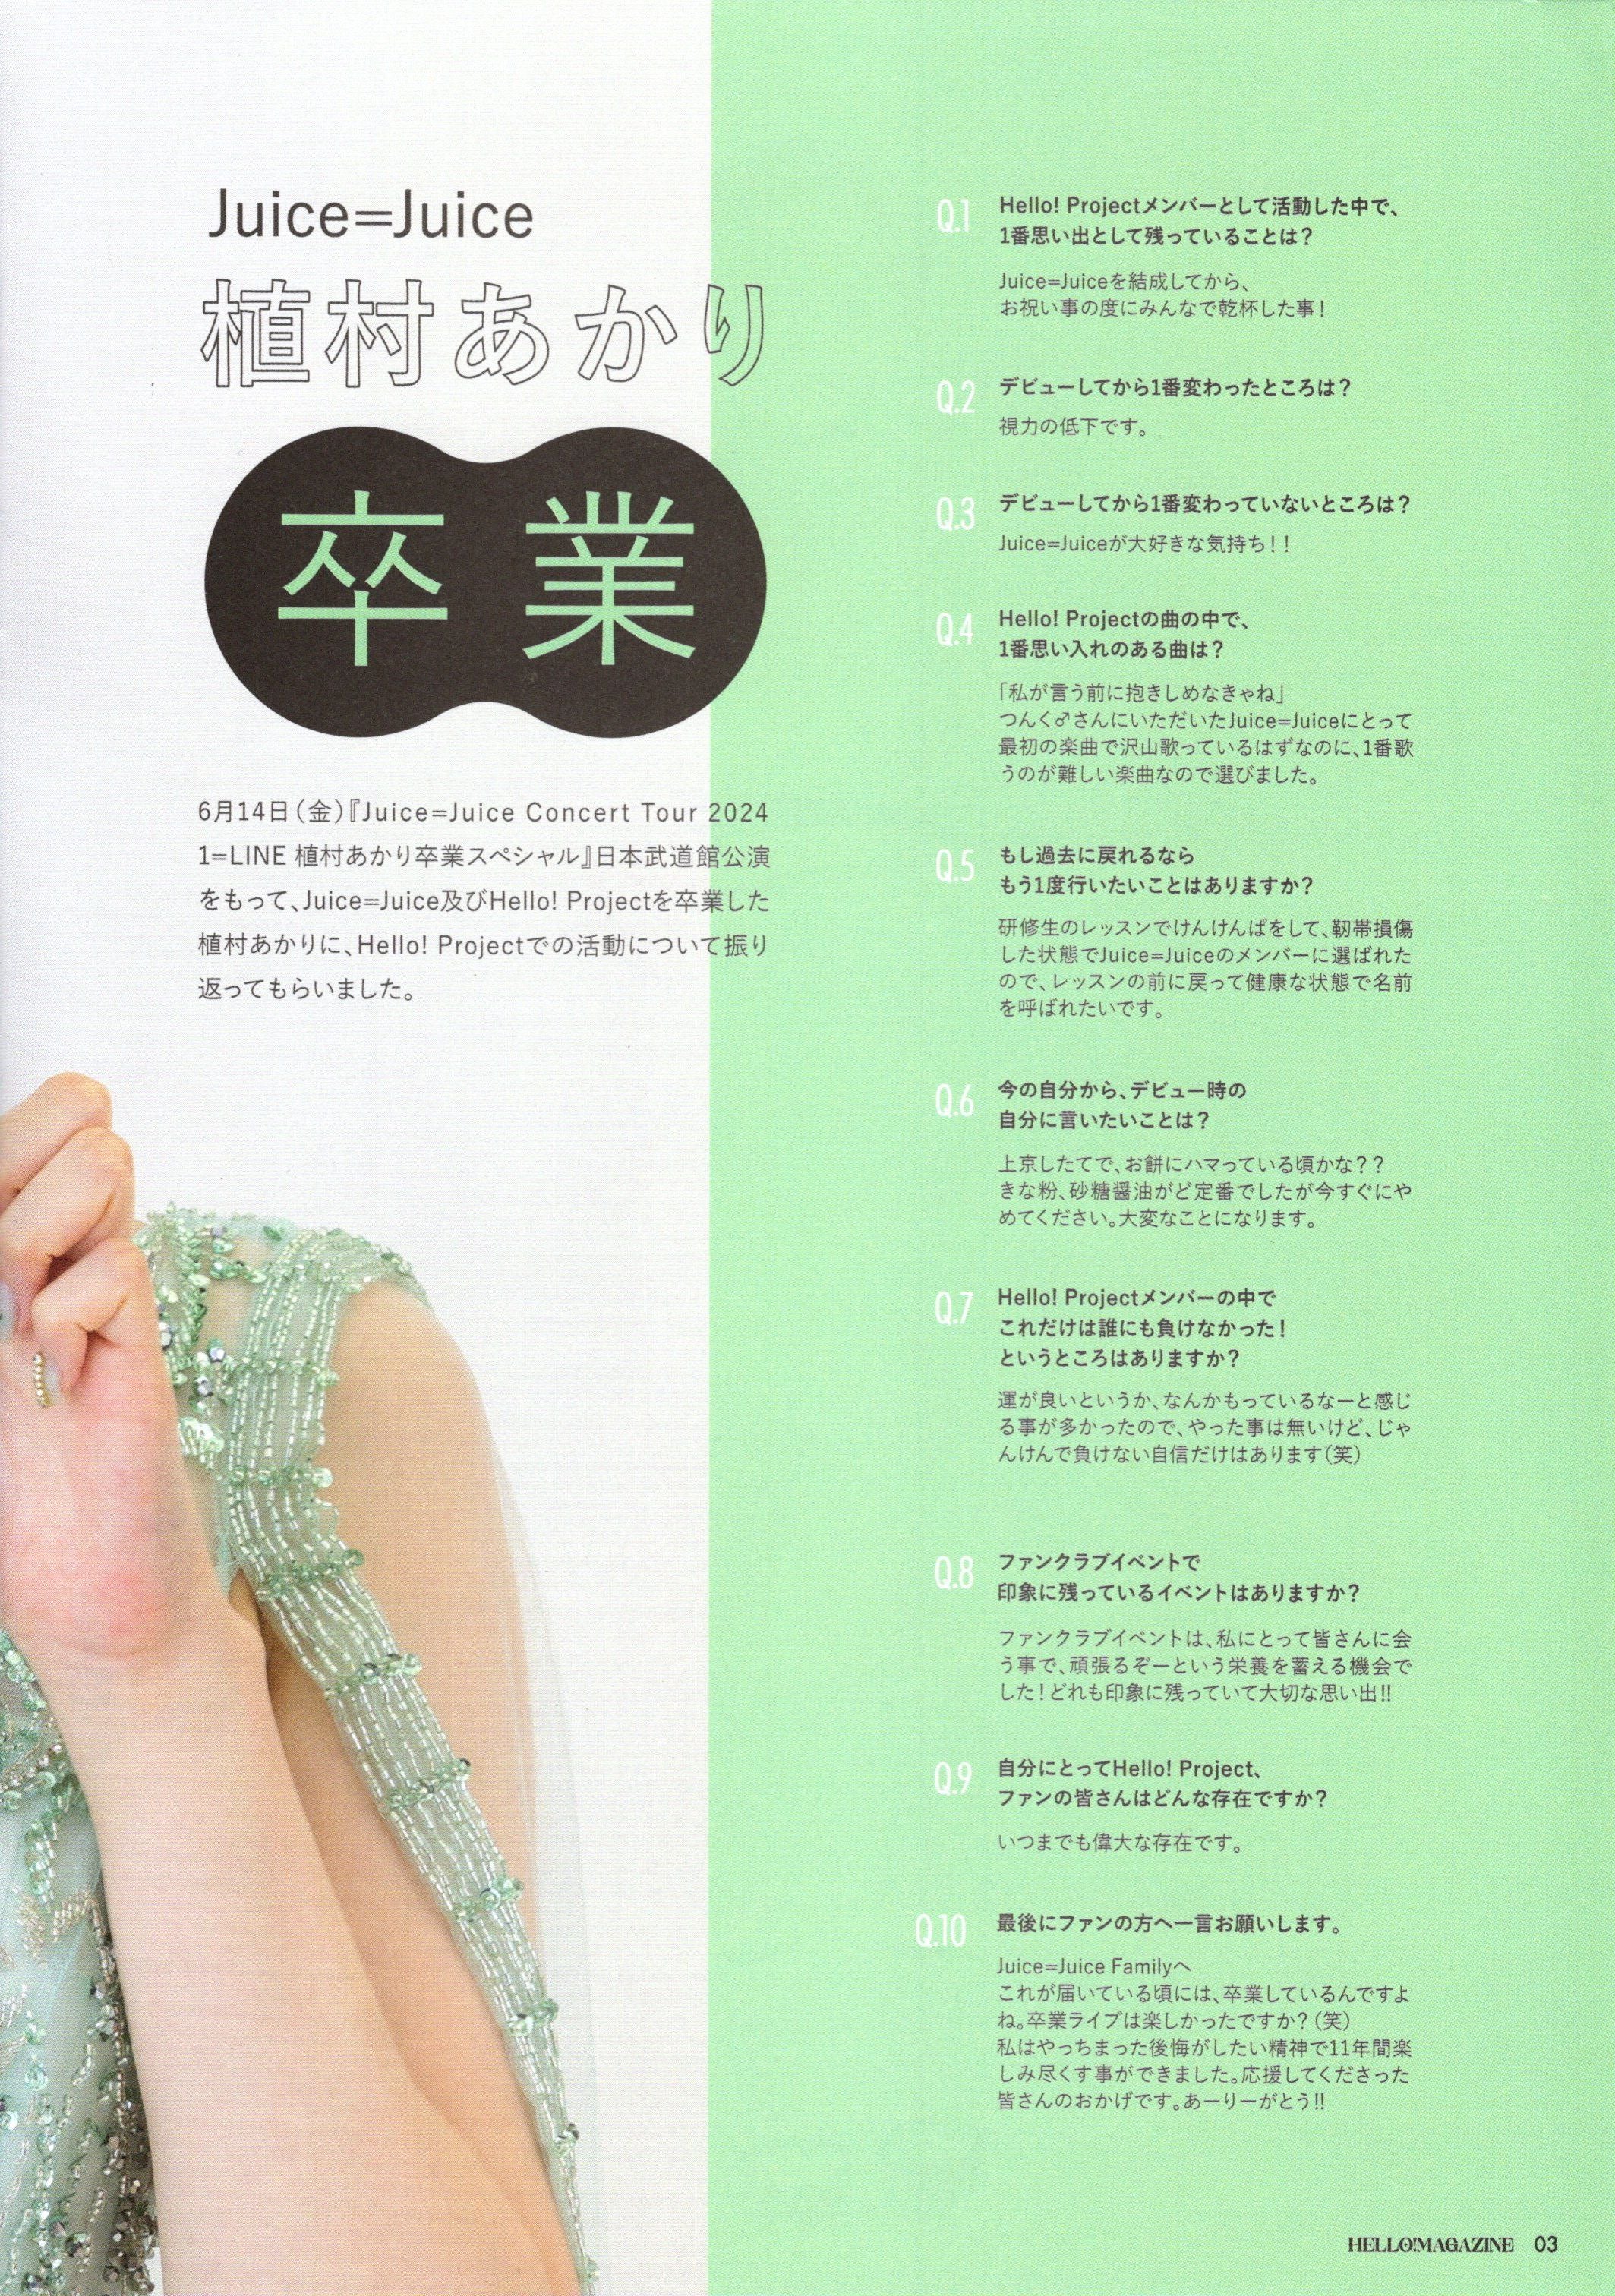 Juice=Juice
植村あかり
卒業
6月14日（金）『Juice=Juice Concert Tour 2024
1=LINE 植村あかり卒業スペシャル』日本武道館公演
をもって、Juice=Juice及びHello! Projectを卒業した
植村あかりに、Hello! Projectでの活動について振り
返ってもらいました。
Q.1
Hello! Projectメンバーとして活動した中で、
1番思い出として残っていることは？
Juice=Juiceを結成してから、
お祝い事の度にみんなで乾杯した事！
Q.2
デビューしてから1番変わったところは？
視力の低下です。
Q.3
デビューしてから1番変わっていないところは？
Juice=Juiceが大好きな気持ち！！
Q.4
Hello! Projectの曲の中で、
1番思い入れのある曲は？
「私が言う前に抱きしめなきゃね」
つんく♂さんにいただいたJuice=Juiceにとって
最初の楽曲で沢山歌っているはずなのに、1番歌
うのが難しい楽曲なので選びました。
Q.5
もし過去に戻れるなら
もう1度行いたいことはありますか？
研修生のレッスンでけんけんぱをして、靭帯損傷
した状態でJuice=Juiceのメンバーに選ばれた
ので、レッスンの前に戻って健康な状態で名前
を呼ばれたいです。
Q.6
今の自分から、デビュー時の
自分に言いたいことは？
上京したてで、お餅にハマっている頃かな？？
きな粉、砂糖醤油がど定番でしたが今すぐにや
めてください。大変なことになります。
Q.7
Hello! Projectメンバーの中で
これだけは誰にも負けなかった！
というところはありますか？
運が良いというか、なんかもっているなーと感じ
る事が多かったので、やった事は無いけど、じゃ
んけんで負けない自信だけはあります（笑）
Q.8
ファンクラブイベントで
印象に残っているイベントはありますか？
ファンクラブイベントは、私にとって皆さんに会
う事で、頑張るぞーという栄養を蓄える機会で
した！どれも印象に残っていて大切な思い出!!
Q.9
自分にとってHello! Project、
ファンの皆さんはどんな存在ですか？
いつまでも偉大な存在です。
Q.10
最後にファンの方へ一言お願いします。
Juice=Juice Familyへ
これが届いている頃には、卒業しているんですよ
ね。卒業ライブは楽しかったですか？（笑）
私はやっちまった後悔がしたい精神で11年間楽
しみ尽くす事ができました。応援してくださった
皆さんのおかげです。あーりーがとう!!
HELLO!MAGAZINE 03